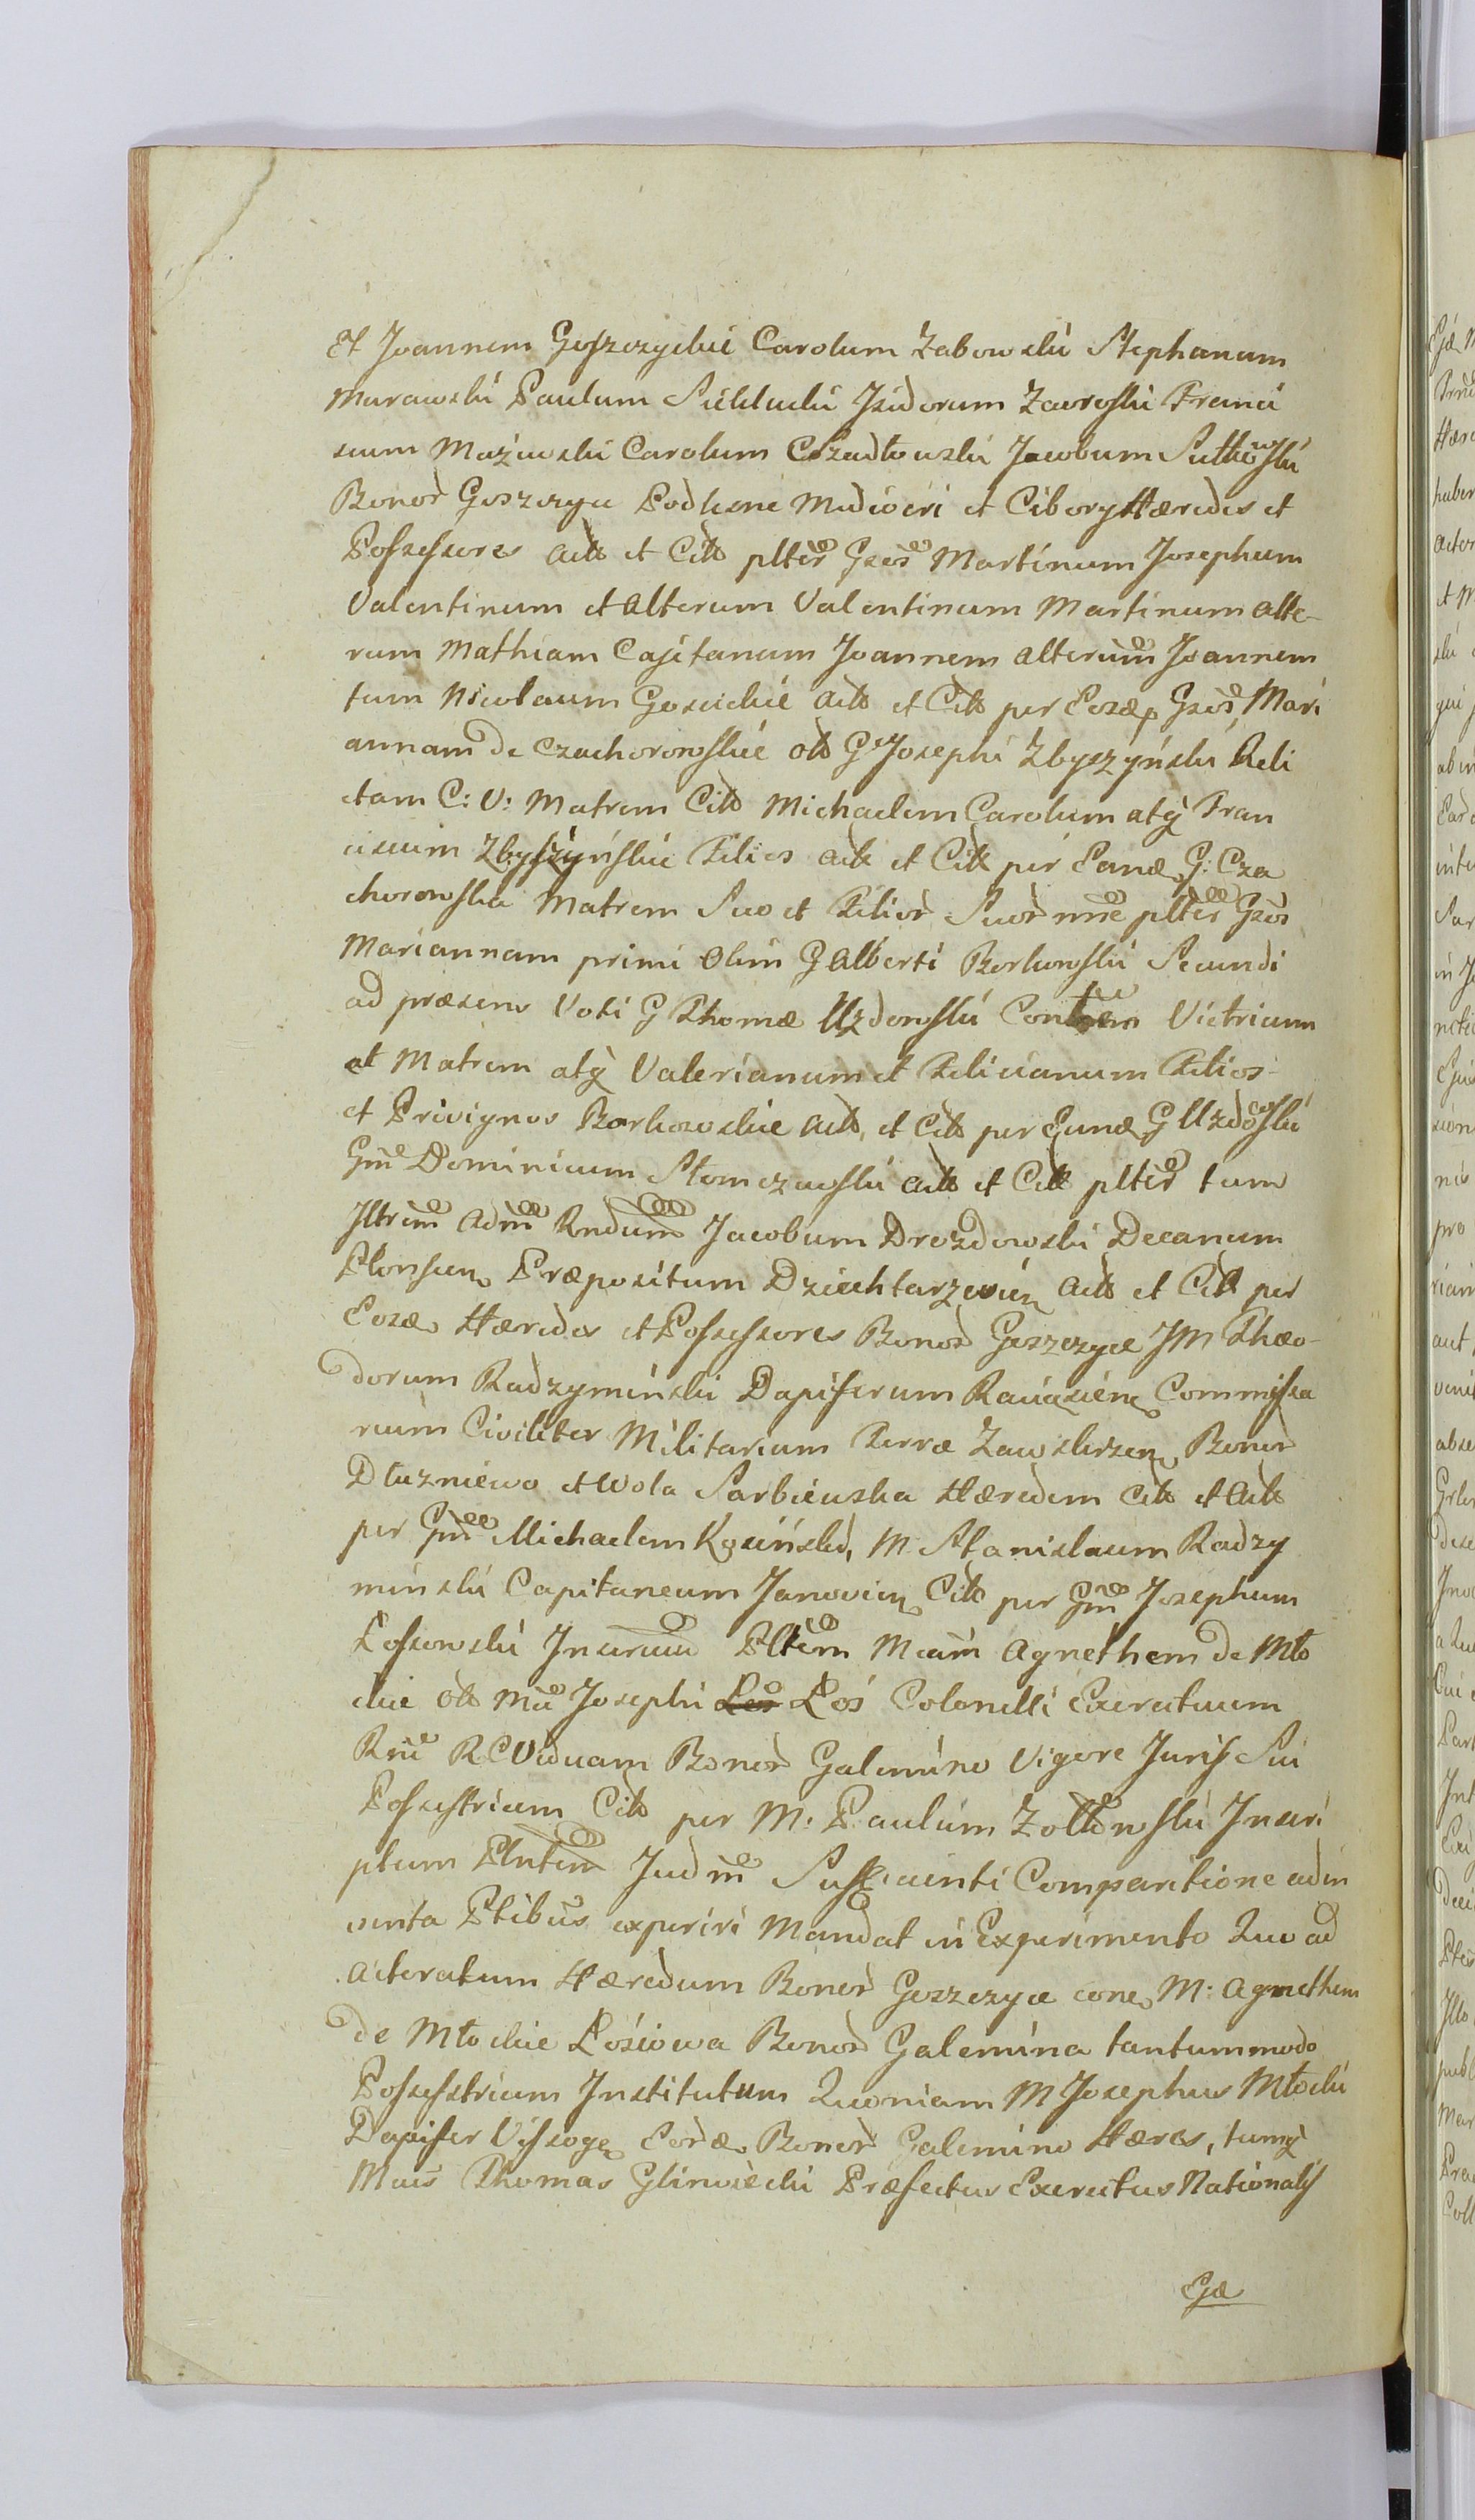 Et Joannem Goszczyckie Carolum Zabowski Stephanum
Murawski Paulum Sieklucki Jsidorum Zawroski Franci
scum Mazewski Carolum Szadkowski Jacobum Sutkowski
Bonor Goszczyce Podlesne Mediocri et Cibory Hæredes et
Possessores actt et Citt plter Gsos Martinum Josephum
Valentinum et alterum Valentinum Martinum alte-
rum Mathiam Cajetanum Joannem alterum Joannem
tum Nicolaum Goscickie actt et Citt per Eosd Gsos Mari
annam de Czachorowskie ott G Josephi Zbyszyński Reli
ctam C: V: Matrem Citt Michaelem Carolum atq Fran
ciscum Zbyszyńskie Filios actt et Citt per Eand G: Cza
chorowska Matrem Suo et Filior Suor nne plter Gsos
Mariannam primi Olim G Alberti Borkowski Secundi
ad præsens Voti G Thomæ Uzdowski Contem Victricum
et Matrem atq Valerianum et Felicianum Filios
et Privignos Borkowskie actt et Citt per Eund G Uzdowski
Gm Dominicum Słomczewski actt et Citt plter tum
Jltrem adm Rndum Jacobum Drozdowski Decanum
Plonscen Præpositum Dziechtarzevien actt et Citt per
Eosd Hæredes et Possessores Bonor Goszczyce JM Theo-
dorum Radzyminski Dapiferum Raciazien Commissa
rium Civiliter Militarium Terræ Zawskrzen Bonor
Dłuzniewo et Wola Sarbiewska Hæredem Citt et actt
per Gm Michaelem Kosiński, M Stanislaum Radzy
minski Capitaneum Janovien Citt per Gm Josephum
Lossowski Jnscrum Pltem Mcam Agnethem de Mło
ckie ott Mci Josephi Łoś Colonelli Exercituum
Rni R C Viduam Bonor Galemino Vigore Juris Sui
Possestricem Citt per M. Paulum Zołtowski Jnscri
ptum Plntem Judm Sufficienti Comparitione ad in
venta Ptibus experiri Mandat in Experimento Quo ad
acteratum Hæredum Bonor Goszczyce cone M: Agnethem
de Młockie Łosiowa Bonor Galemina tantummodo
Possestricem Institutum Quoniam M Josephus Młocki
Dapifer Vissoge Eord Bonor Galemino Hæres, tumq
Mcus Thomas Glinoiecki Præfectus Exercitus Nationalis
Ejd